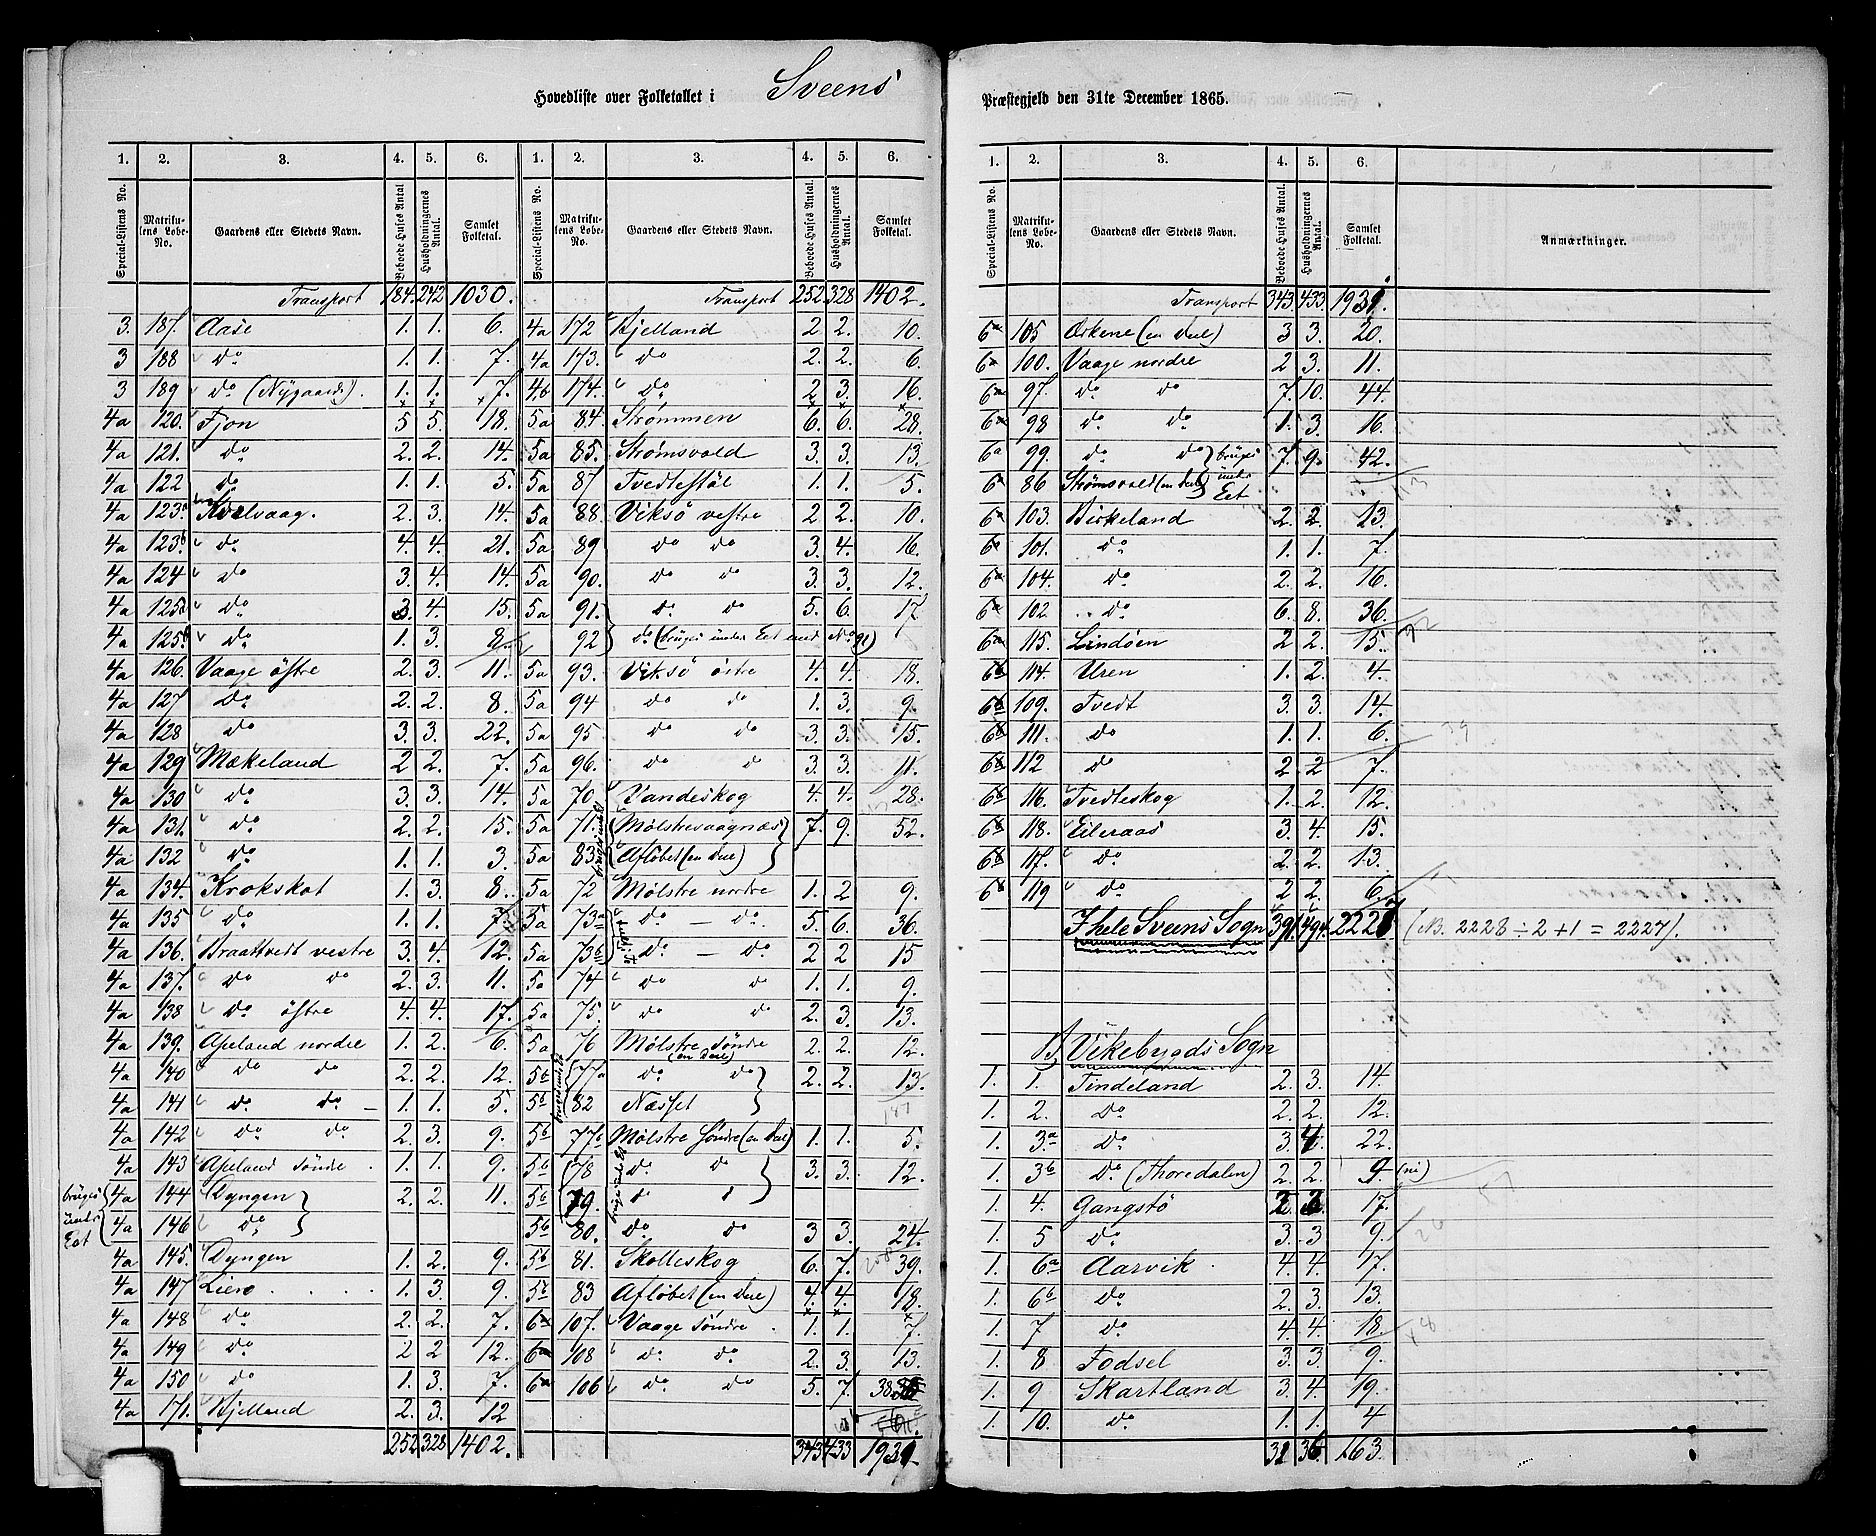 Hovedliste over Folketallet i Sveens Præstegjeld den 31te December 1865.
1. 2. 3. 4. 5. 6.
Special-Listens No. Matrikulens Løbe-No. Gaardens eller Stedets Navn. Beboede Huses Antal. Husholdningernes Antal. Samlet Folketal.
Transport 184. 242 1030.
3. 187. Aase 1. 1. 6.
3 188 do 1. 1. 7.
3 189 do (Nygaard). 1. 1. 7.
4a 120. Fjon 5 5. 18.
4a 121. do 2. 2. 14.
4a 122 do 1. 1. 5.
4a 123a Kvalvaag. 2. 3. 14.
4a 123b do 4. 4. 21.
4a 124 do 3. 4. 14.
4a 125a do 3. 4. 15.
4a 125b do 1. 3. 8.
4a 126. Vaage østre 2. 3. 11.
4a 127 do 2. 2. 8.
4a 128 do 3. 3. 22.
4a 129 Mækeland 2 2. 7.
4a 130 do 3. 3. 14.
4a 131. do 2. 2. 15.
4a 132 do 1. 1. 3.
4a 134. Krokskot 1. 3. 8.
4a 135 do 1. 1. 7.
4a 136. Braattvedt vestre 3. 4. 12.
4a 137. do do 2. 3. 11.
4a 138 do østre 4. 4. 17.
4a 139. Apeland nordre 1. 2. 6.
4a 140 do do 2. 2. 12.
4a 141 do do 1. 1. 5.
4a 142 do do 2. 3. 9.
4a 143 Apeland søndre 1. 1. 9.
bruges under Eet
4a 144 Dyngen 2. 2. 11.
4a 146 do
4a 145. Dyngen 1. 2. 9.
4a 147 Liero 1. 3. 9.
4a 148 do 2. 2. 7.
4a 149 do 2 2 12.
4a 150 do 1. 3. 7.
4a 171. Kjelland 2. 3. 12
252 328 1402.
1. 2. 3. 4. 5. 6.
Special-Listens No. Matrikulens Løbe-No. Gaardens eller Stedets Navn. Beboede Huses Antal. Husholdningernes Antal. Samlet Folketal.
Transport 252 328 1402.
4a 172 Kjelland 2 2. 10.
4a 173. do 2. 2. 6.
4b 174. do 2 3. 16.
5a 84. Strømmen 6. 6. 28.
5a 85. Strømsvold 3. 3. 13.
5a 87 Tvedtestøl 1. 1. 5.
5a 88 Viksø vestre 2 2. 10.
5a 89 do do 3. 4. 16.
5a 90. do do 3. 3. 12.
5a 91. do do 5. 6. 17
92 do (bruges under Eet med No 91)
5a 93. Viksø østre 4. 4. 18.
5a 94 do do 1. 3. 9.
5a 95 do do 3. 3. 15.
5a 96. do do 3. 3. 11.
5a 70. Vandeskog 4. 4. 28.
5a 71. Mølstrevaagnæs 7. 9. 52.
5a 83. Afløbet (en Deel)
5a 72 Mølstre nordre 1. 2 9.
5a 73a do — do 5. 6. 36.
5a 73b do — do 2 2 15
5a 74 do do 1. 1. 9.
5a 75. do do 2. 3. 13.
5a 76 Mølstre søndre (en Deel) 2. 2. 12.
5b 77a do do 2. 2. 13.
5b 82 Næsset
5b 77b Mølstre søndre (en Deel) 1. 1. 5.
5b 78 do do 3. 3. 12.
5b 79. d d
5b 80. do do 3 3. 24.
5b 81. Skolleskog 6. 7. 39.
5b 83 Afløbet (en Deel) 4. 4. 18.
6a 107. Vaage søndre 1. 1. 7.
6a 108 do do 2. 3. 13.
6a 106 do do 5. 7. 38
343 433 1931
1. 2. 3. 4. 5. 6. 7.
Special-Listens No. Matrikulens Løbe-No. Gaardens eller Stedets Navn. Beboede Huses Antal. Husholdningernes Antal. Samlet Folketal. Anmærkninger.
Transport 343. 433. 1931.
6a 105 Ørkene (en Deel) 3 3. 20.
6a 100. Vaage nordre 2 3. 11.
6a 97. do do 7. 10. 44.
6a 98 do do 1. 3. 16.
6a 99. do do 7. 9. 42.
6a 86 Strømsvold (en Deel) bruges under Eet
6a 103. Birkeland 2. 2. 13.
6a 101. do 1. 1. 7.
6a 104. do 2. 2. 16.
6a 102 do 6. 8. 36.
6a 115. Lindøen 2 2. 15.
6b 114. Uren 1. 2. 4.
6b 109. Tvedt 3. 3. 14.
6b 111. do 1. 1. 6.
6b 112 do 2 2 7.
6b 116. Tvedteskog 1. 2. 12.
6b 118. Eileraas 3. 4. 15.
6b 117. do 2. 2. 13.
6b 119 do 2 2. 6.
I hele Sveens Sogn 391. 494. 2227 (NB. 2228 ÷ 2 + 1 = 2227).
B) Vikebygds Sogn
1. 1. Tindeland 2. 3. 14.
1. 2. do 2. 2. 12.
1. 3a do 3 4. 22.
1. 3b do (Thoredalen) 2. 2. 9. (ni)
1. 4. Gangstø 2 3. 17.
1. 5 do 3. 3. 9.
1. 6a Aarvik 4. 4. 17.
1. 6b do 2. 3. 13.
1. 7 do 4. 4. 18.
1. 8 Fodsel 3. 3. 9.
1. 9 Skartland 3. 4. 19.
1. 10. do 1. 1. 4
31 36 163.